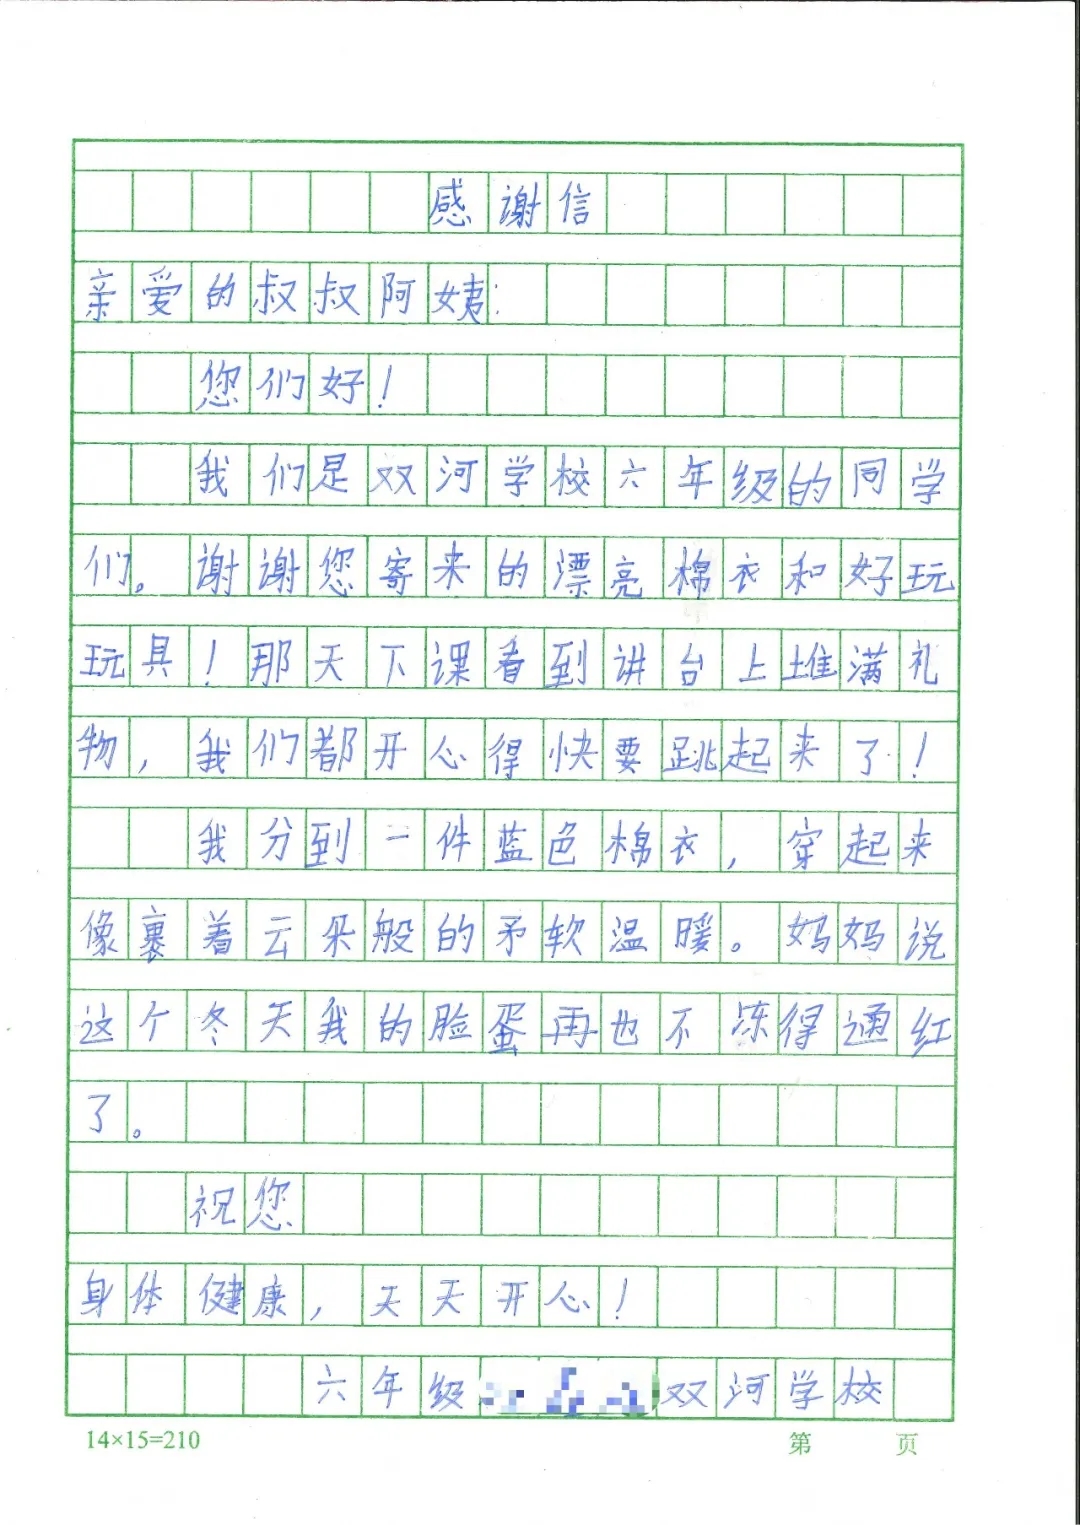 感谢信
亲爱的叔叔阿姨:
您们好!
我们是双河学校六年级的同学
们。谢谢您寄来的漂亮棉衣和好玩
玩具!那天下课看到讲台上堆满礼
物,我们都开心得快要跳起来了!
我分到一件蓝色棉衣,穿起来
像裹着云朵般的矛软温暖。妈妈说
这个冬天我的脸蛋再也不冻得通红
了。
祝您
身体健康,天天开心!
六年级 双河学校
14×15=210
第 页